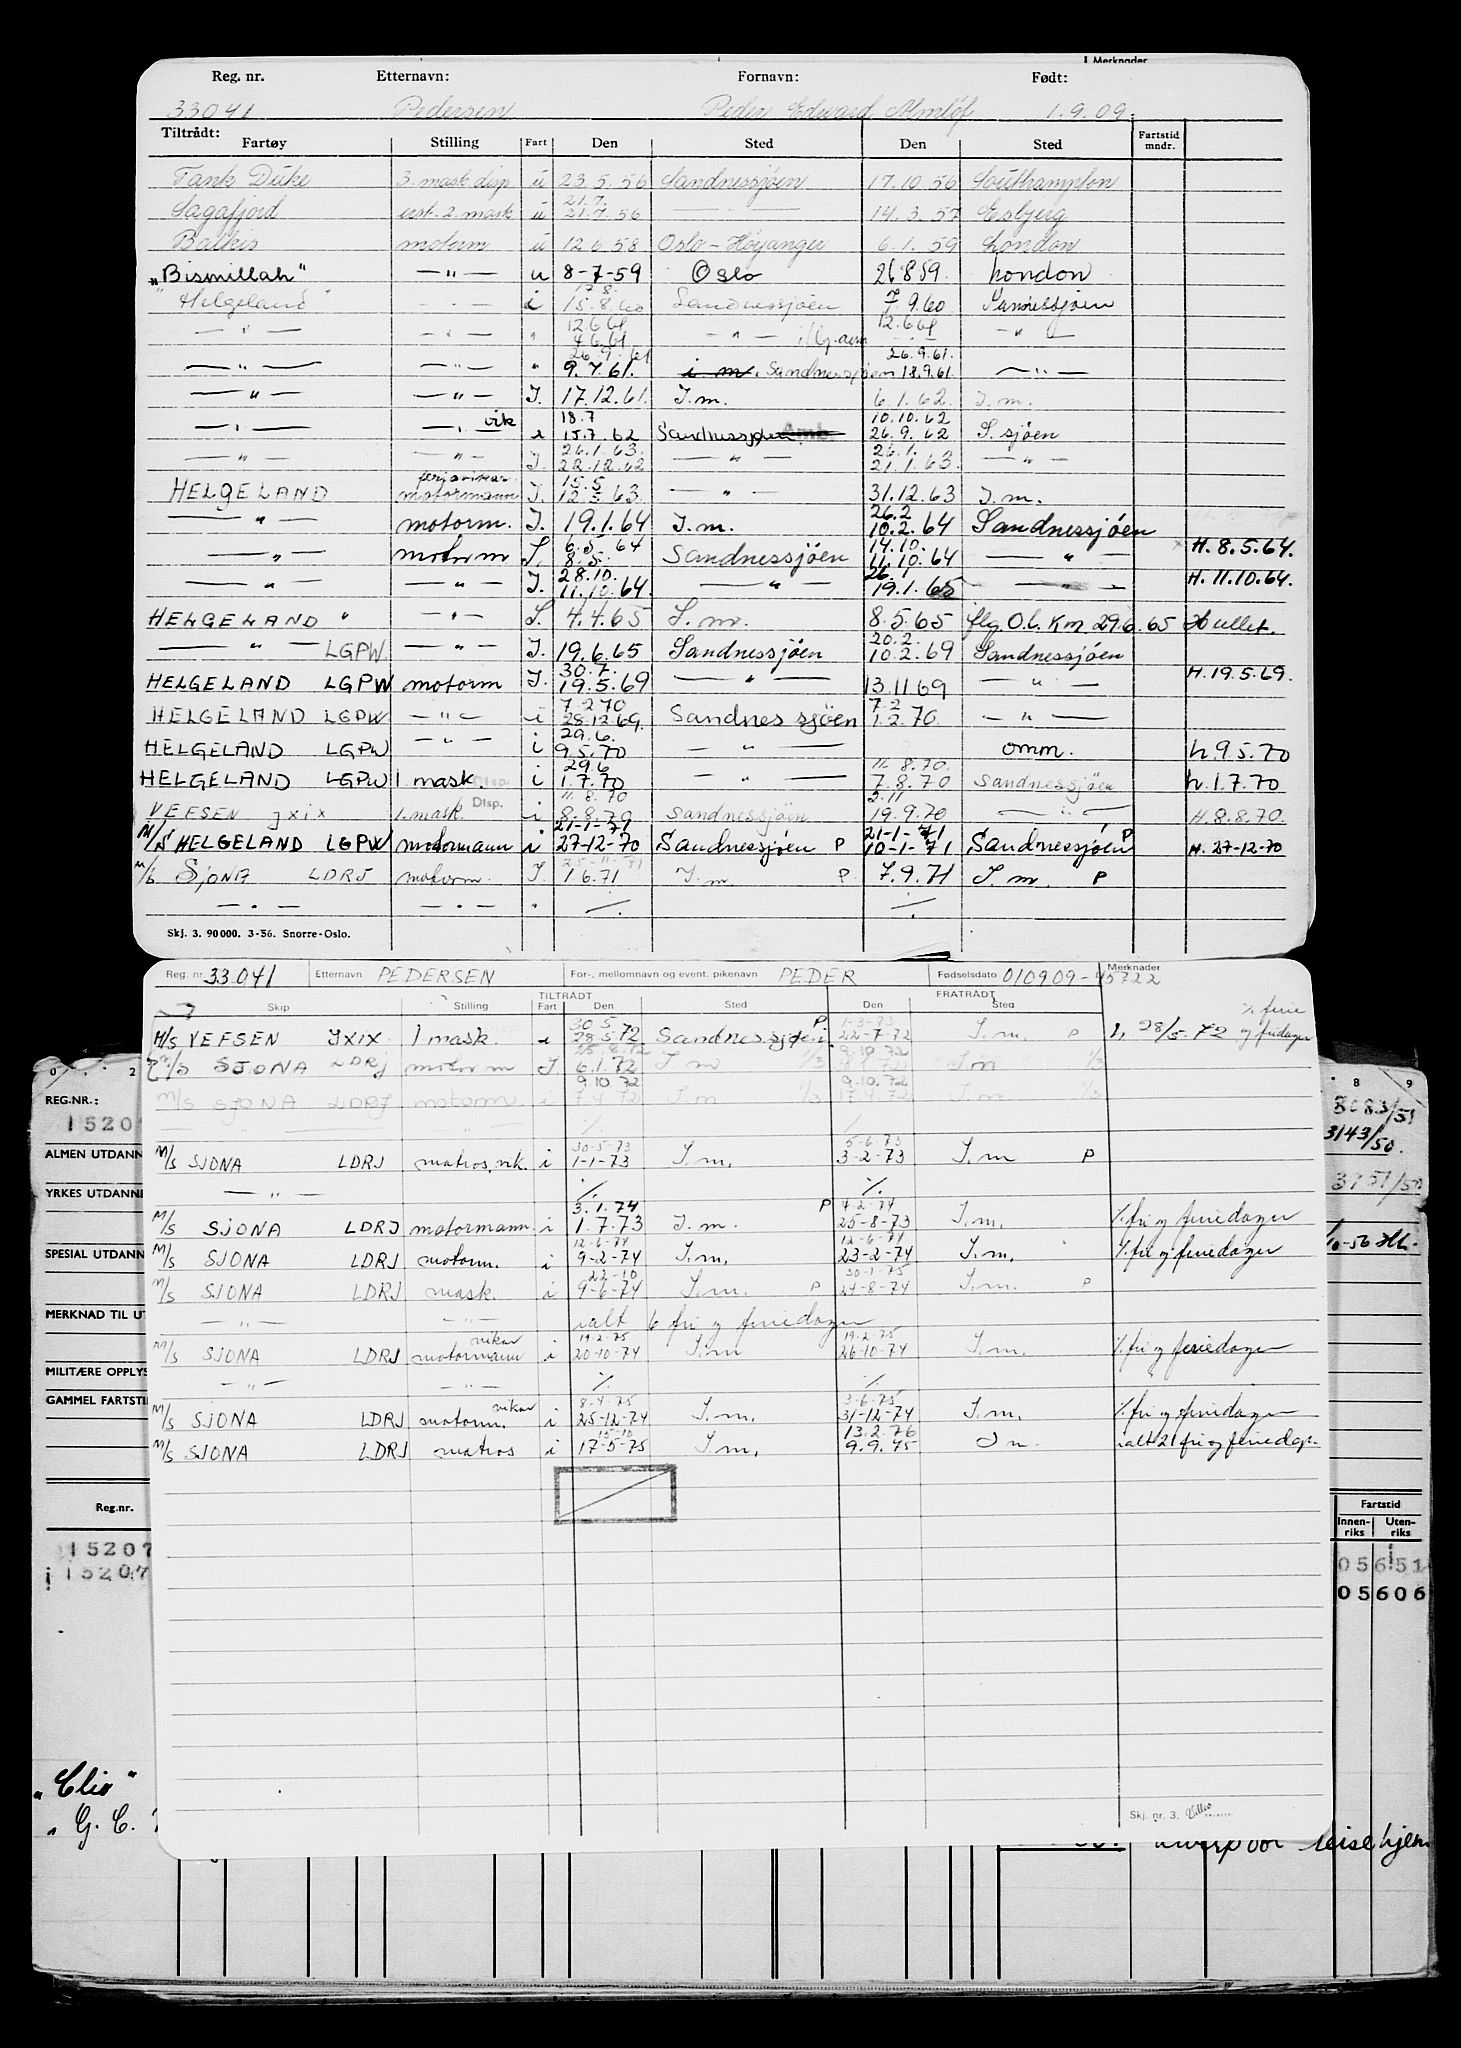 Merknader
Reg. nr. Etternavn: Fornavn: Født:
33041 Pedersen Peder Edvard Almlöf 1.9.09.
Tiltrådt:
Fartøy Stilling Fart Den Sted Den Sted Fartstid mndr.
Tank Duke 3. mask disp u 23.5.56 Sandnessjøen 17.10.56 Southampton
21.7.
Sagafjord ust. 2. mask u 21.7.56 — " — 14.3.57 Esbjerg
Balkis motorm u 12.6.58 Oslo - Höyanger 6.1.59 London
"Bismillah" — " — u 8-7-59 Oslo 26 8 59 London
17.8.
"Helgeland" — " — i 15.8.60 Sandnessjöen 7.9.60 Sannessjöen
12.6.61 12.6.61
— " — — " — " 4.6.61 — " — — " —
26.9.61 26.9.61.
— " — — " — " 9.7.61. i m. Sandnessjøen 18.9.61 — " —
— " — — " — I. 17.12.61. I.m. 6.1.62. I.m.
vik 18.7 10.10.62
— " — — " — i 15.7.62 Sandnessjøen 26.9.62 S.sjöen
26.1.63. 26.1.
— " — — " — I. 22.12.62 — " — 21.1.63. — " —
ferjavikar 15.5
HELGELAND motormann I. 12.5.63. — " — 31.12.63 I.m.
26.2
— " — motorm. I. 19.1.64 I.m. 10.2.64 Sandnessjöen
6.5.64 14.10.
— " — motorm I. 8.5. Sandnessjöen 11.10.64 — " — H. 8.5.64.
28.10. 26.1
— " — — " — I. 11.10.64. — " — 19.1.65 — " — H. 11.10.64.
HELGELAND " — " — I. 4.4.65 I.m. 8.5.65 flg O.l. Km 29.6.65 Hullet.
20.2.
— " — LGPW — " — I. 19.6.65 Sandnessjöen 10.2.69 Sandnessjöen
30.7.
HELGELAND LGPW motorm I. 19.5.69 — " — 13.11 69 — " — H. 19.5.69.
7.2 70 7.2
HELGELAND LGPW — " — i 28.12.69. Sandnessjöen 1.2.70. — " —
29.6.
HELGELAND LGPW — " — i 9.5.70 — " — omm. h. 9.5.70
29.6 11.8.70.
HELGELAND LGPW 1. mask. Disp. i 1.7.70 — " — 7.8.70 Sandnessjöen h. 1.7.70
11.8.70 2.11
VEFSEN JXIX 1. mask. Disp. i 8.8.70 Sandnessjöen 19.9.70 — " — H. 8.8.70.
21-1-71 21-1-71
M/S HELGELAND LGPW motormann i 27-12-70 Sandnessjøen P 10-1-71 Sandnessjøen P H. 27-12-70
25-11-71
M/S SJONA LDRJ motorm. I. 1 6.71 I.m. P. 7.9.71 I.m. P
— " — — " — " ·/. ·/.
Skj. 3. 90000. 3-56. Snorre-Oslo.
Reg. nr. 33.041 Etternavn PEDERSEN For-, mellomnavn og event. pikenavn PEDER Fødselsdato 010909-45722 Merknader
TILTRÅDT FRATRÅDT
Skip Stilling Fart Den Sted Den Sted
30.5. P 1-3-73 % ferie
M/S VEFSEN JXIX 1 mask. i 28.5.72 Sandnessjøen 22-7-72 I.m. P 28/5-72 og fridager
25.8.72 9.10.72
M/S SJONA LDRJ motorm I 6.1.72 I m 1/3 I.m 1/3
9.10.72 9.10.72
M/S SJONA LDRJ motorm i 7.4.72 I.m 1/3 17.9.72 I.m. 1/3
·/. /
30-5-73 5-6-73
M/S SJONA LDRJ matros, vik. i 1-1-73 I.m. 3-2-73 I.m P
— " — ·/. ·/.
3.1.74 P 4-2-74
M/S SJONA LDRJ motormann. i 1.7.73 I.m. 25-8-73 I.m. % fri og feriedager
12-6-74 12-6-74
M/S SJONA LDRJ motorm. i 9-2-74 I.m. 23-2-74 I.m. % fri og feriedager
22-10 30-1-75
M/S SJONA LDRJ mask. i 9-6-74 I.m. P 24-8-74 I.m. P
— " — — " — ialt 6 fri og feriedager
vikar 19-2-75 19-2-75
M/S SJONA LDRJ motormann i 20-10-74 I.m 26-10-74 I.m. % fri og feriedager
— " — — " — ·/. ·/.
vikar 8-4-75 3-6-75
M/S SJONA LDRJ motorm. i 25-12-74 I.m. 31-12-74 I.m. % fri og feriedager
15-10 13.2.76
M/S SJONA LDRJ matros i 17-5-75 I.m. 9.9.45 I m. ialt 21 fri og feriedager
Skj. nr. 3.
0 . . 2
REG.NR.:
1520
ALMEN UTDANN
YRKES UTDANNE
SPESIAL UTDANN
MERKNAD TIL U
MILITÆRE OPPLYS
GAMMEL FARTSTID
Reg.nr.
15207
15207
"Clio"
" G. C.
8 9
8083/51
3143/50.
3151/50
/10-56 HL.
Fartstid
Innen-riks Uten-riks
05651
05606
Liverpool reise hjem